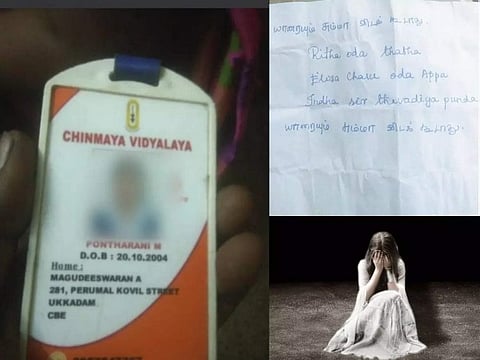 CHINMAYA VIDYALAYA
PONTHARANI M
D.O.B : 20.10.2004
Home :
MAGUDEESWARAN A
281, PERUMAL KOVIL STREET
UKKADAM
CBE
யாரையும் சும்மா விடக் கூடாது.
Ritha oda thatha
Elisa Chave oda Appa
Indha sir thevadiya punda
யாரையும் சும்மா விடக் கூடாது.